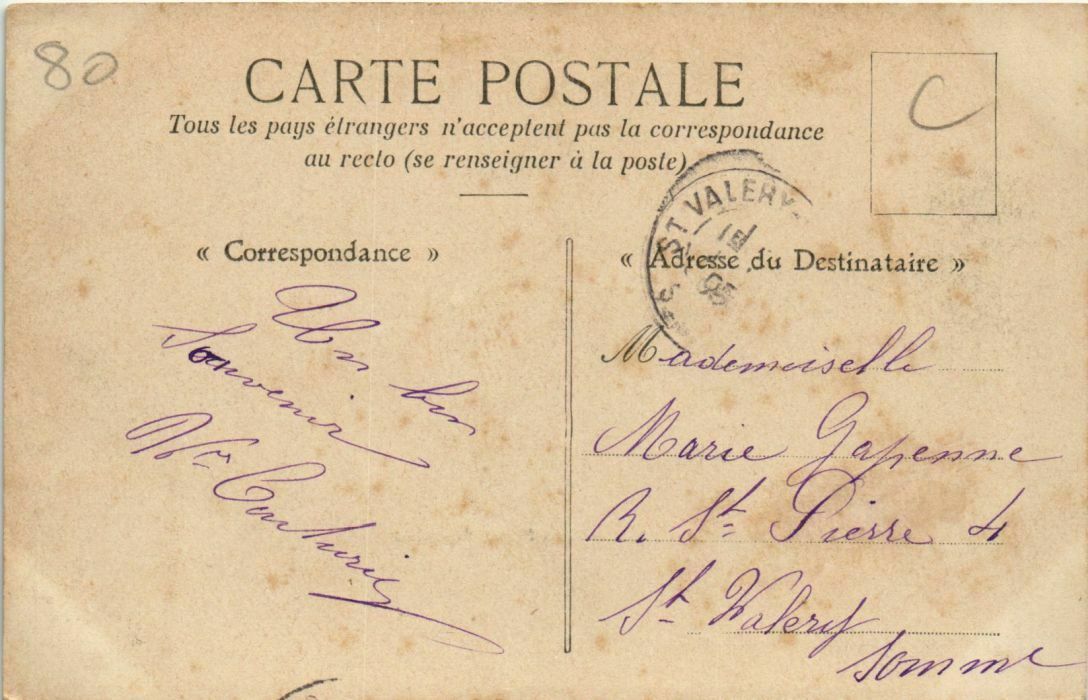 80
CARTE POSTALE
C
Tous les pays étrangers n'acceptent pas la correspondance
au recto (se renseigner à la poste)
ST VALERY
05
« Correspondance »
Un bon
Souvenir
« Adresse du Destinataire »
Mademoiselle
Marie Gapenne
R. St. Pierre 4
St Valery
Somme